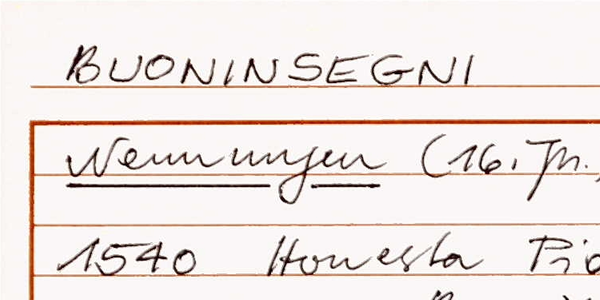 BUONINSEGNI
Nennungen (16. Jh.,
1540 Honesta